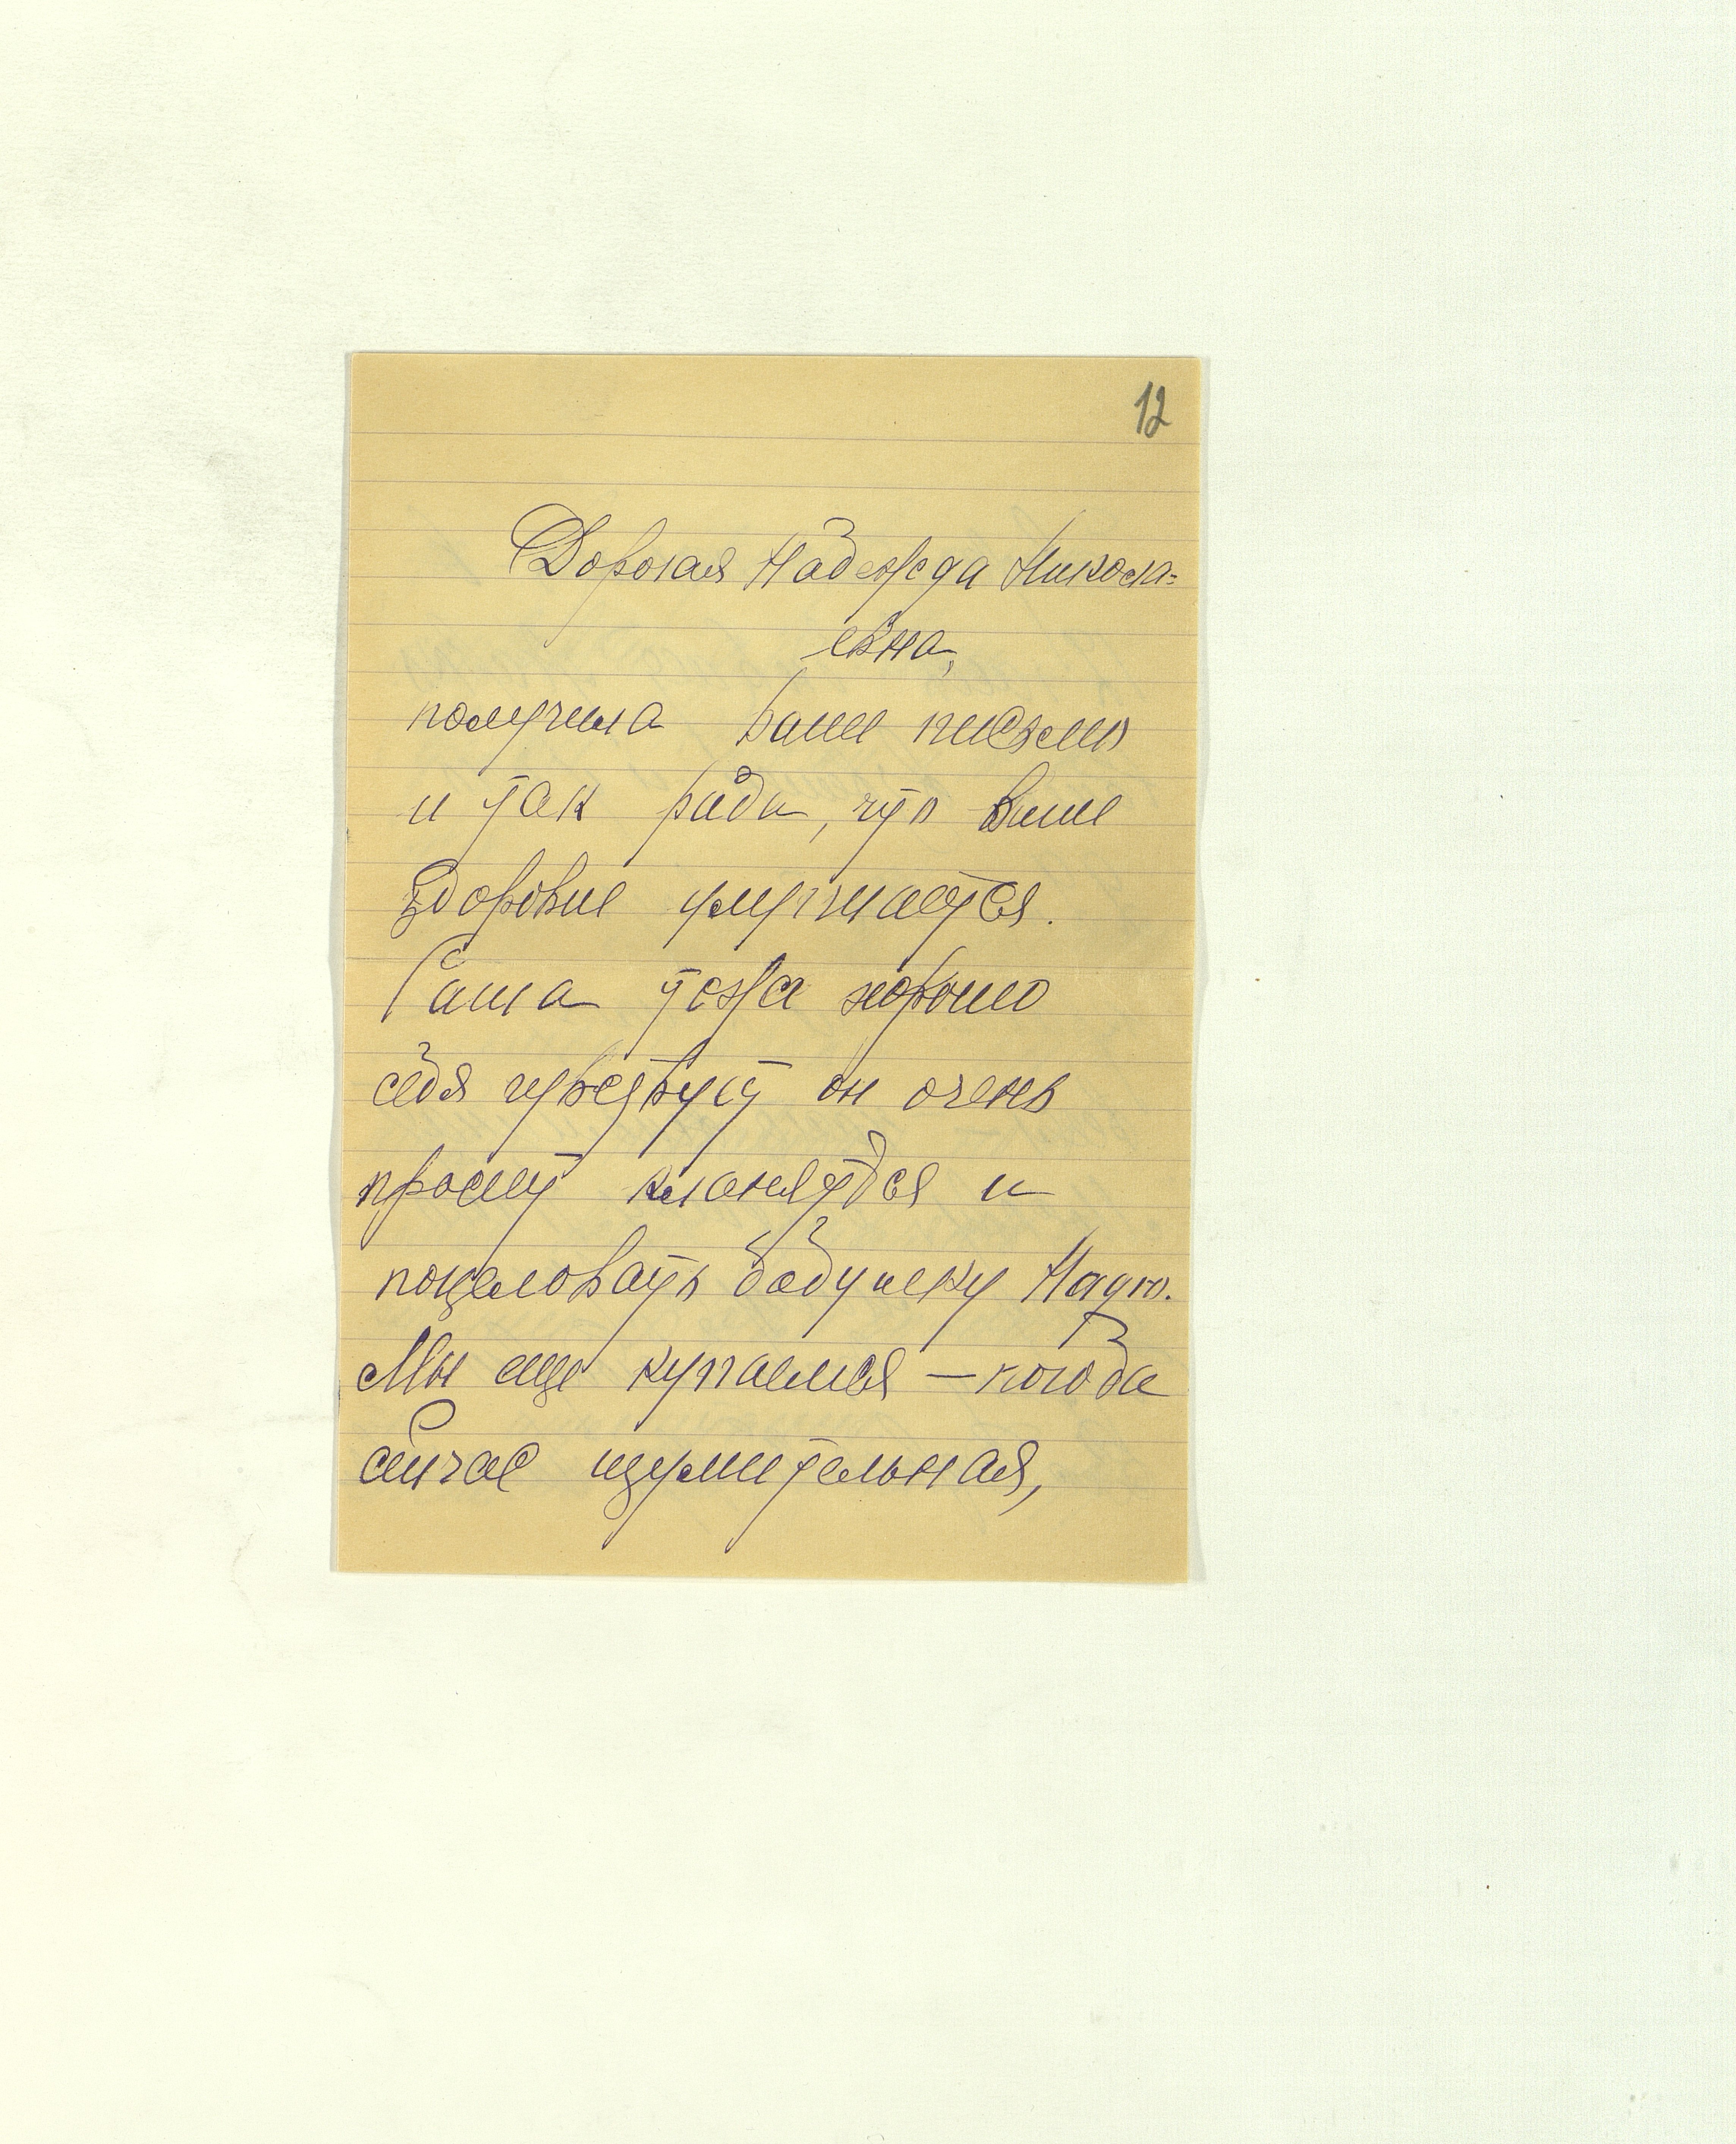 12
Дорогая Надежда Никола=
евна,
получила Ваше письмо
и так рада, что Ваше
здоровье улучшается.
Саша тоже хорошо
себя чувствует он очень
просит кланяться и
поцеловать бабушку Надю.
Мы еще купаемся — погода
сейчас изумительная,